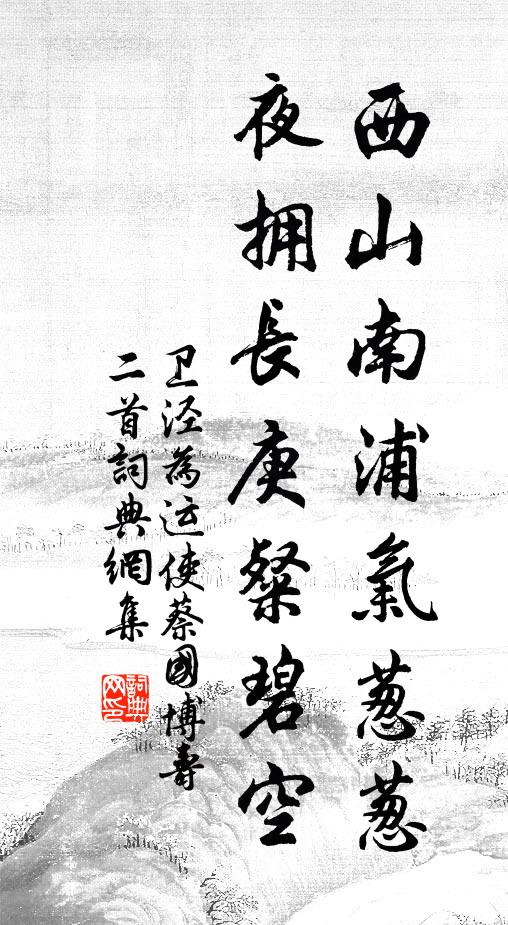 西山南浦氣葱葱
夜拥長庚粲碧空
卫泾為运使蔡國博壽
二首詞典網集
詞典网印